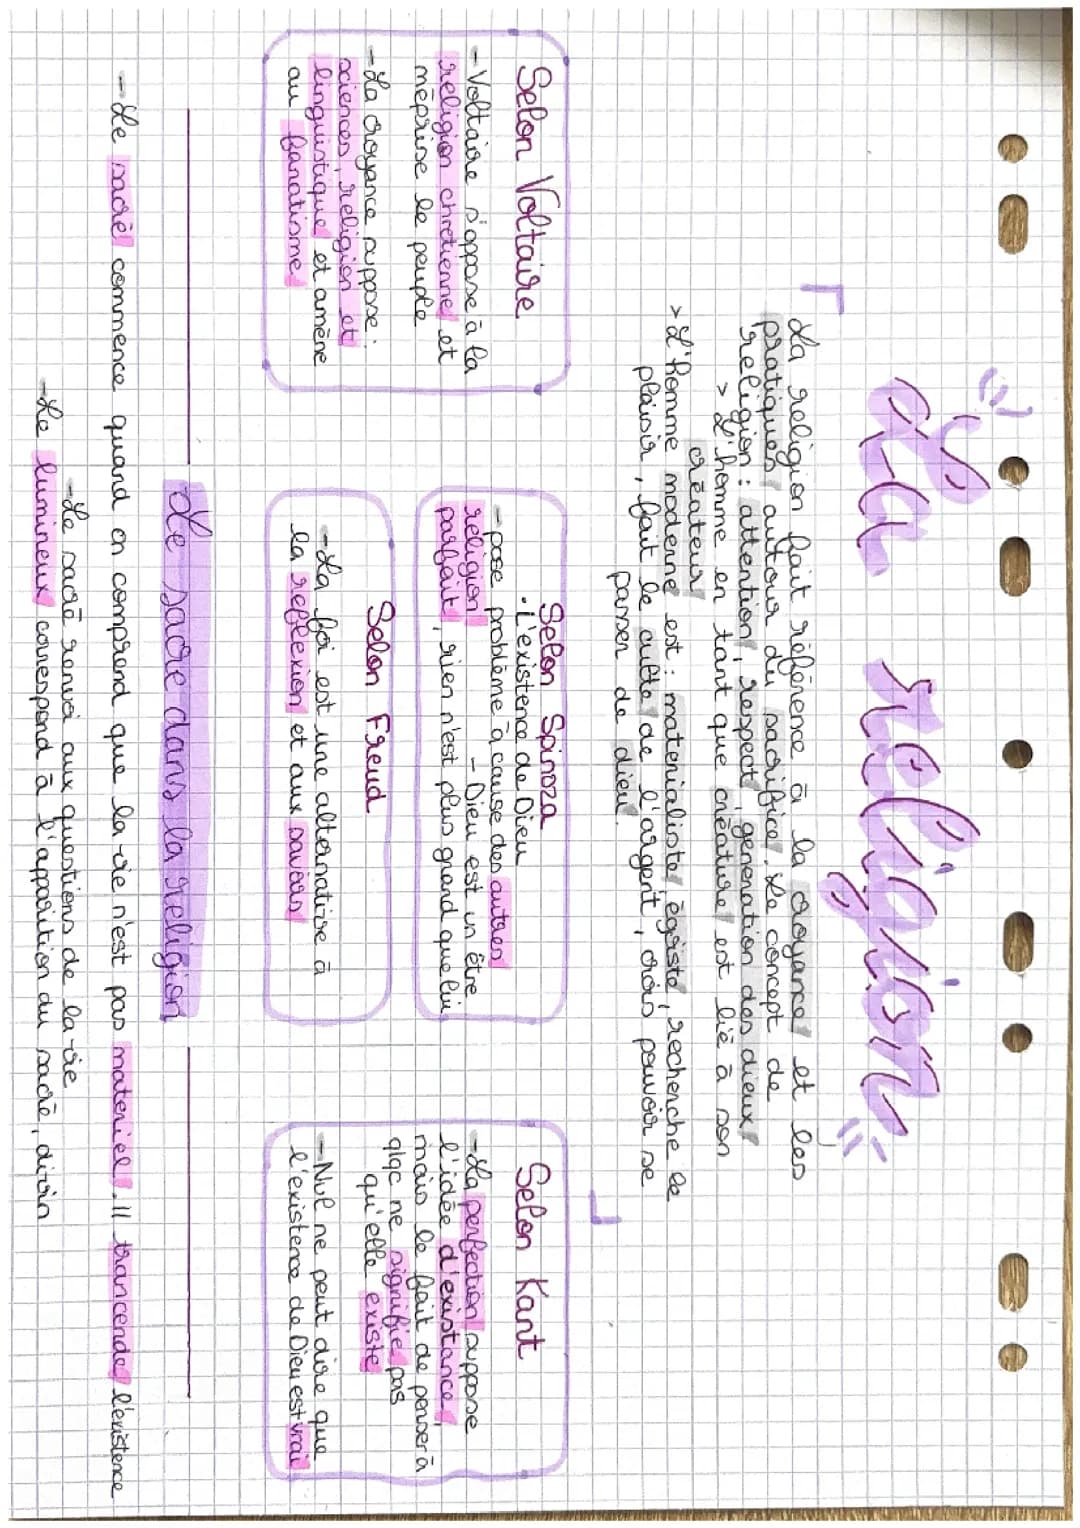 La religion
La religion fait référence à la croyance et les
pratiques autour du sacrifice. Le concept de
religion : attention, respect, génération des dieux
> L'homme en tant que créature est lié à son
créateur
> L'homme moderne est : materialiste, égoïste, recherche le
plaisir, fait le culte de l'argent, crois pouvoir se
passer de dieu.
Selon Voltaire
- Voltaire s'oppose à la
religion chretienne et
méprise le peuple
- La croyance suppose :
sciences, religion et
linguistique et amène
au fanatisme
Selon Spinoza
· L'existence de Dieu
- pose problème à cause des autres
religion - Dieu est un être
parfait, rien n'est plus grand que lui
Selon Freud
- La foi est une alternative à
la reflexion et aux savoirs
Selon Kant
- La perfection suppose
l'idée d'existance,
mais le fait de penser à
qlqc ne signifie pas
qu'elle existe
- Nul ne peut dire que
l'existence de Dieu est vrai
Le sacré dans la religion
- Le sacré commence quand on comprend que la vie n'est pas materiel. Il trancende l'existence
- Le sacré renvoi aux questions de la vie
- Le lumineux correspond à l'apparition du sacré, divin